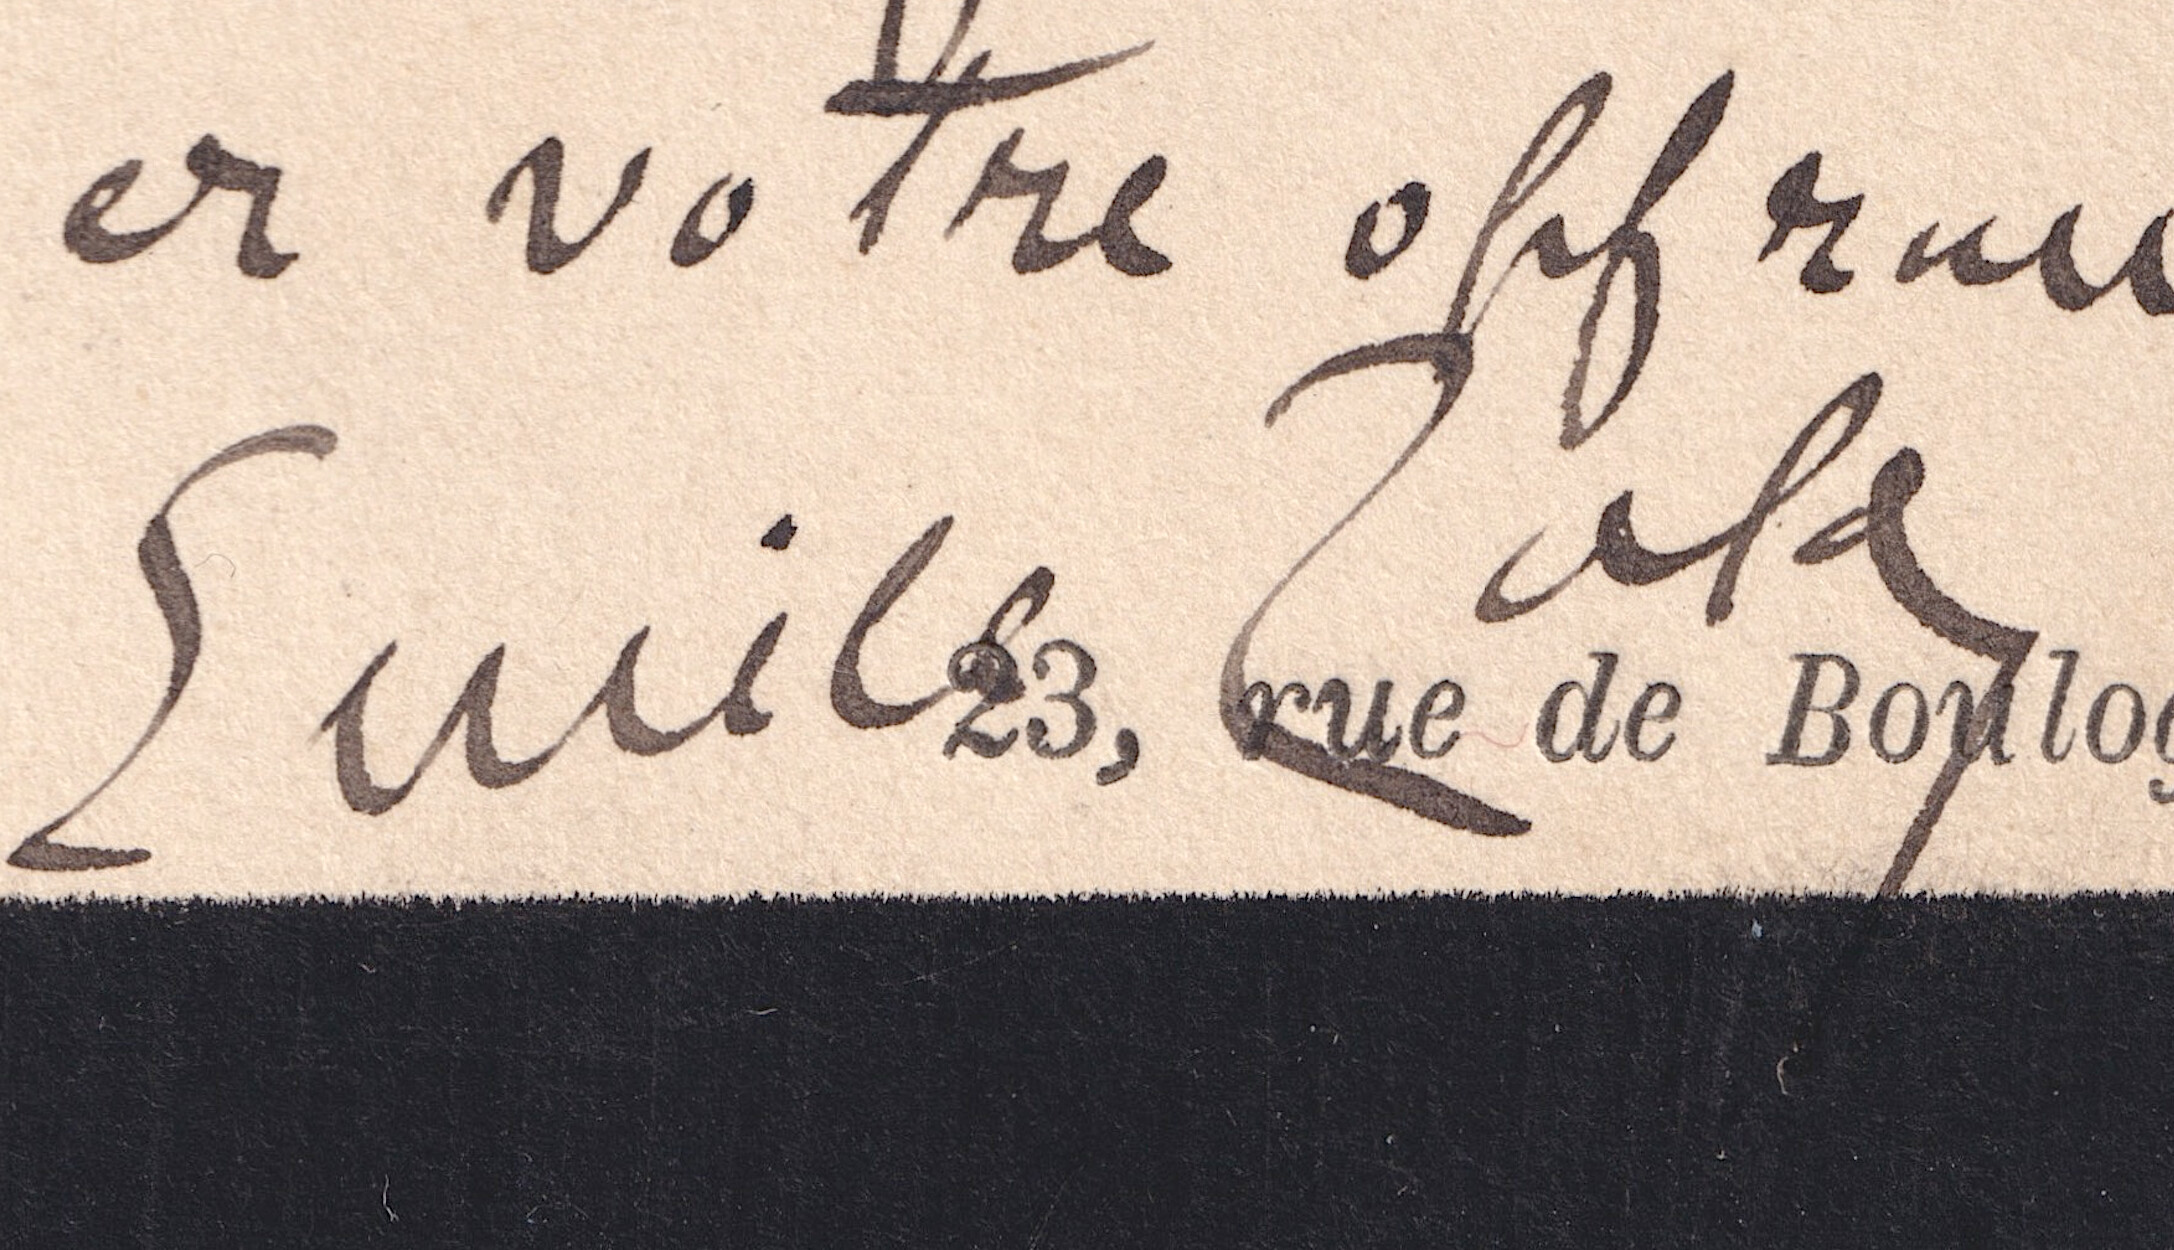 er votre offrande
Emile Zola
23, rue de Boulog